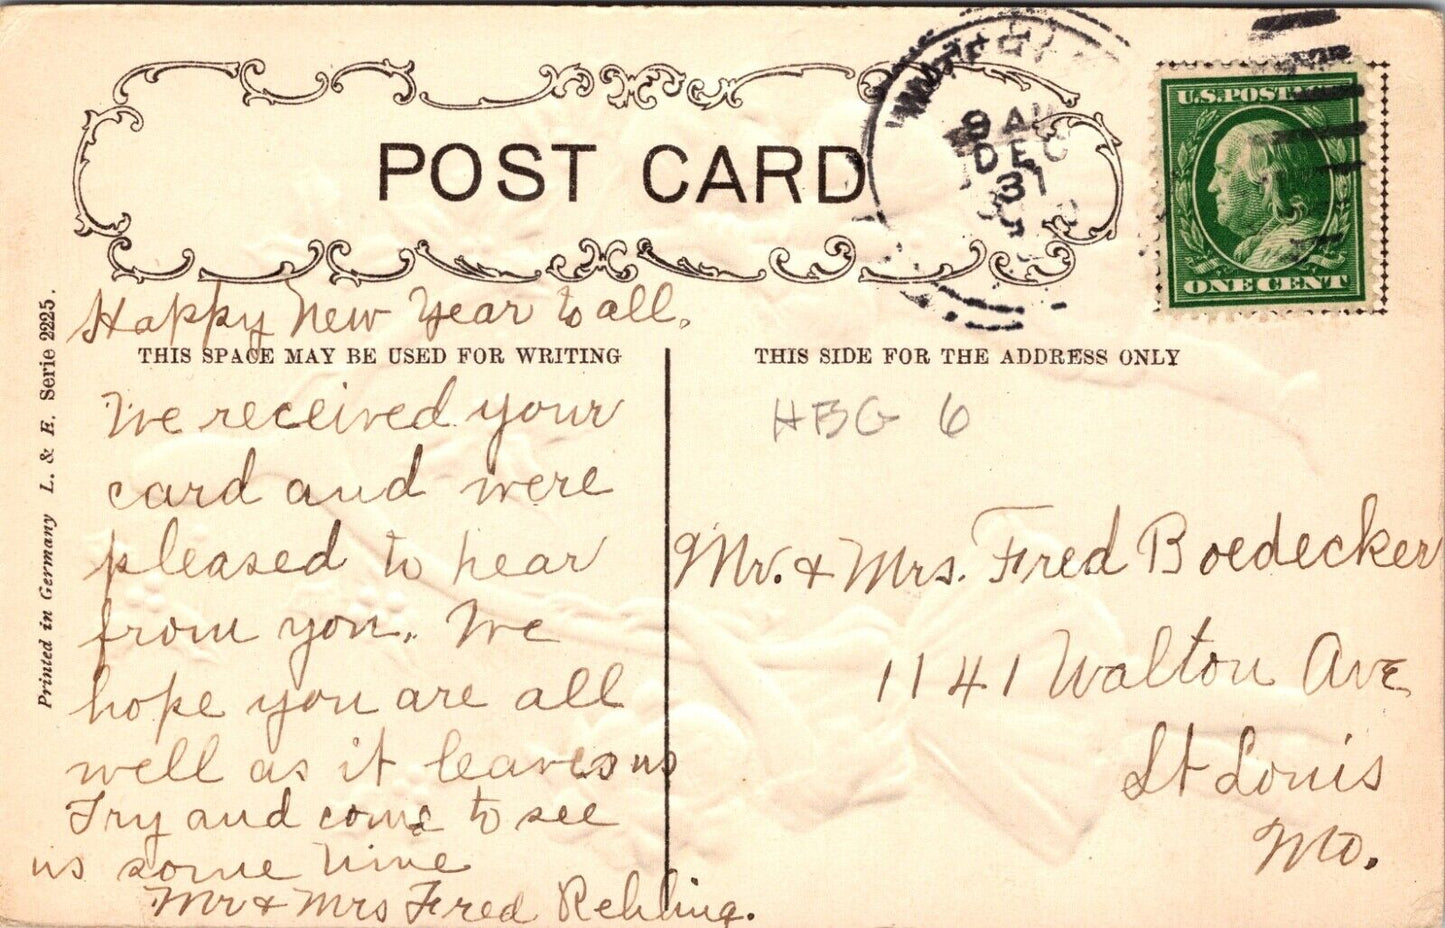 POST CARD
9 AM
DEC
31
U.S. POSTAGE
ONE CENT
Happy New Year to all.
THIS SPACE MAY BE USED FOR WRITING
We received your
card and were
pleased to hear
from you. We
hope you are all
well as it leaves us
Try and come to see
us some time
Mr & Mrs Fred Rehling.
THIS SIDE FOR THE ADDRESS ONLY
HBG 6
Mr. & Mrs. Fred Boedecker
1141 Walton Ave
St Louis
Mo.
Printed in Germany L. & E. Serie 2225.